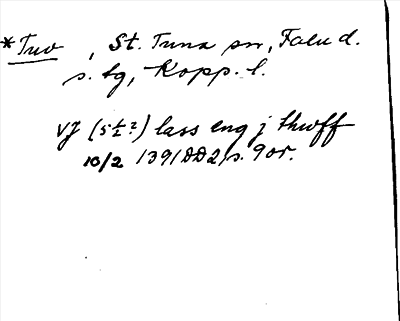 *Tuo , St. Tuna sn, Falu d.
s. tg, Kopp. l.
VJ (5 ½ ?) lass eng j thwff
10/2 1391 DD2, s. 90r.